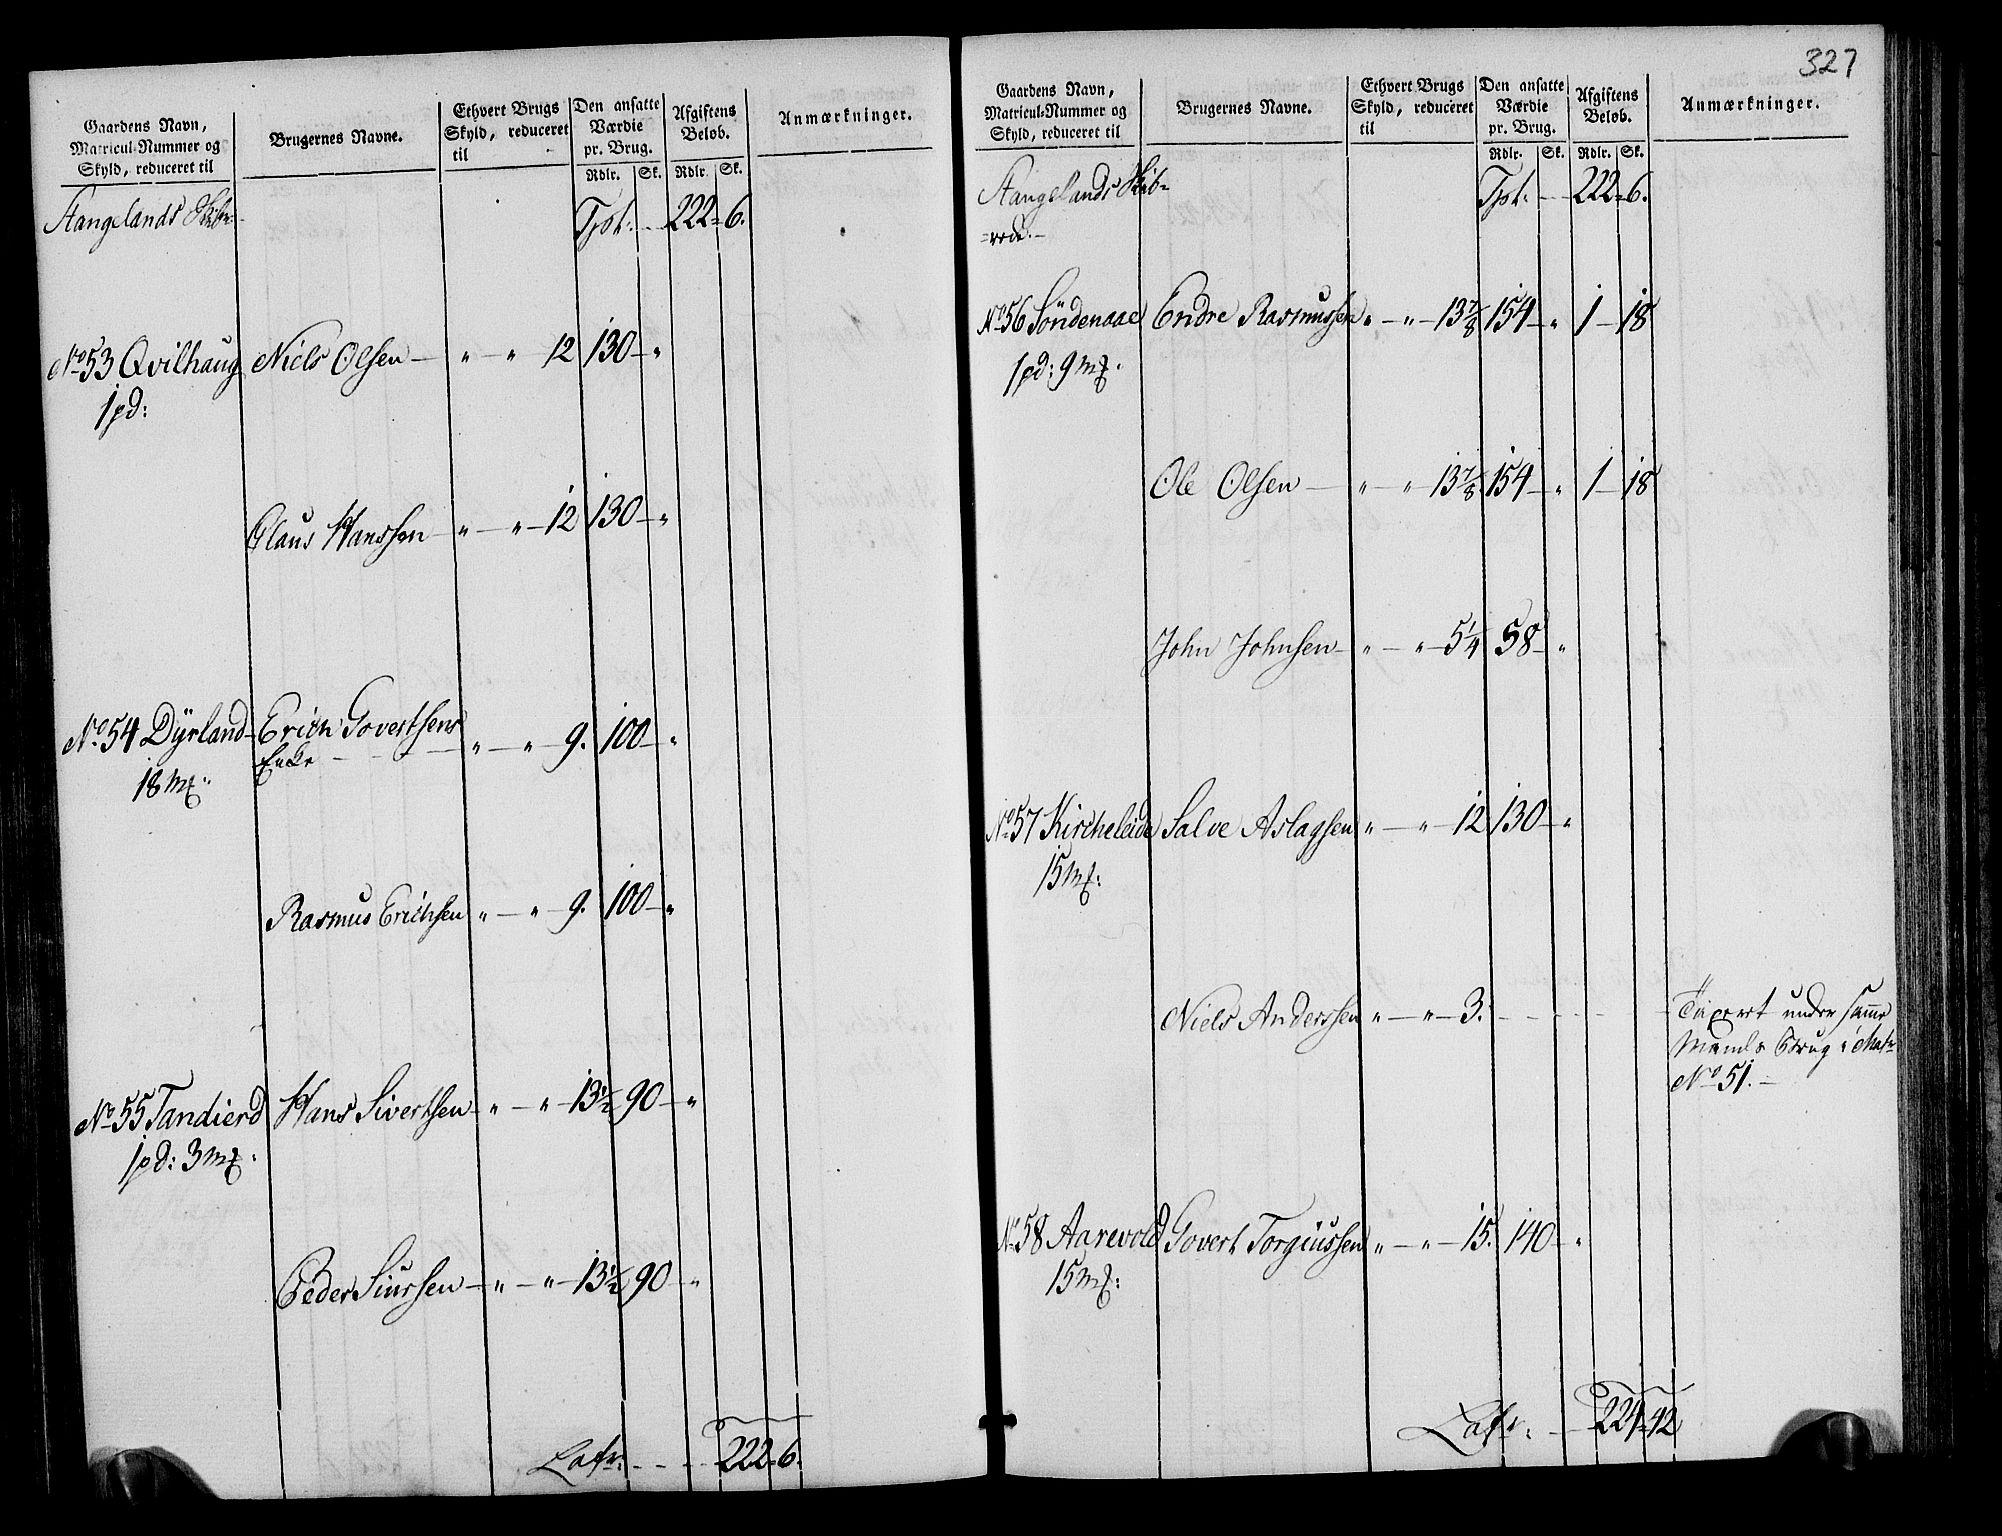 Gaardens Navn,
Matricul-Nummer og
Skyld, reduceret til
Brugernes Navne.
Ethvert Brugs
Skyld, reduceret
til
Den ansatte
Værdie
pr. Brug.
Rdlr. Sk.
Afgiftens
Beløb.
Rdlr. Sk.
Anmærkninger.
Stangelands Skibr- Tpt: - 222 - 6.
No 53 Qvilhaug Niels Olsen - „ - „ 12 130 - „
1 pd:
Claus Hanssen - „ - „ - 12 130 - „
No 54 Dÿrland - Erich Govertsens „ - „ - 9. 100 - „
18 mk: Enke
Rasmus Erichsen „ - „ - 9. 100 - „
No 55 Tandierd Hans Sivertsen - „ - „ - 13½ 90 - „
1 pd: 3 mk.
Peder Siursen - „ - „ - 13½ 90 - „
Latr: - - - 222 - 6.
327
Gaardens Navn,
Matricul-Nummer og
Skyld, reduceret til
Brugernes Navne.
Ethvert Brugs
Skyld, reduceret
til
Den ansatte
Værdie
pr. Brug.
Rdlr. Sk.
Afgiftens
Beløb.
Rdlr. Sk.
Anmærkninger.
Stangelands Skib- Tpt: - 222 - 6.
=rede. -
No 56 Söndenaae Endre Rasmussen „ - „ - 13⅞ 154 - „ 1 - 18
1 pd: 9 mk.
Ole Olsen - „ - „ - 13⅞ 154 - „ 1 - 18
John Johnsen - „ - „ - 5¼ 58 - „
No 57 Kircheleide Salve Aslagsen „ - „ - 12 130 - „
15 mk:
Niels Anderssen „ - „ - 3. - - - Taxeret under samme
Mands Brug i Matr
No 51. -
No 58 Aarevold Govert Torgiussen „ - „ - 15. 140 - „
15 mk:
Latr: - 224 - 42